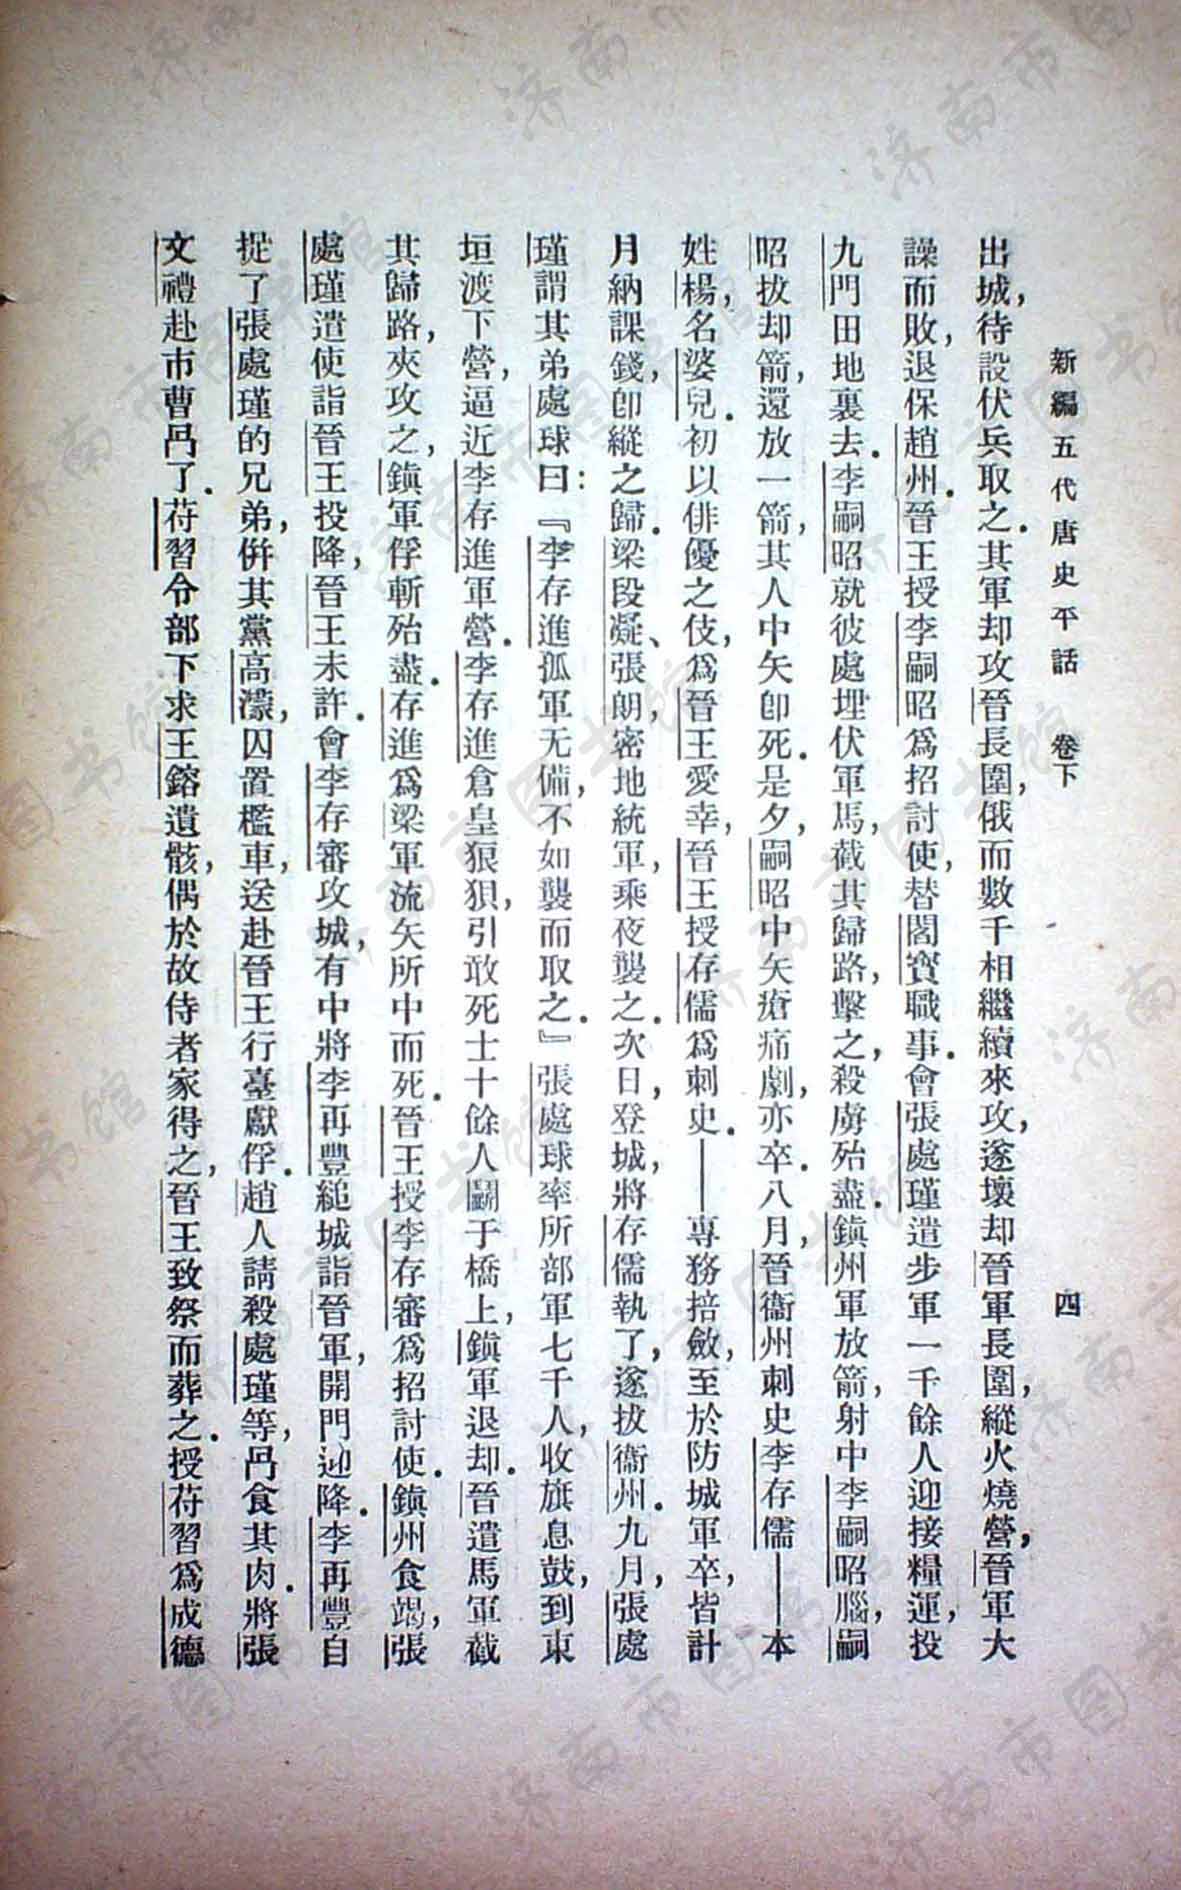 新編五代唐史平話　卷下　四
出城，待設伏兵取之．其軍却攻晉長圍，俄而數千相繼續來攻，遂壞却晉軍長圍，縱火燒營，晉軍大
譟而敗，退保趙州．晉王授李嗣昭爲招討使，替閻寶職事．會張處瑾遣步軍一千餘人迎接糧運，投
九門田地裏去．李嗣昭就彼處埋伏軍馬，截其歸路，擊之，殺虜殆盡．鎮州軍放箭，射中李嗣昭腦，嗣
昭拔却箭，還放一箭，其人中矢卽死．是夕，嗣昭中矢瘡痛劇，亦卒．八月，晉衞州刺史李存儒——本
姓楊，名婆兒．初以俳優之伎，爲晉王愛幸，晉王授存儒爲刺史．——專務掊斂，至於防城軍卒，皆計
月納課錢，卽縱之歸．梁段凝、張朗，密地統軍乘夜襲之．次日，登城，將存儒執了，遂拔衞州．九月，張處
瑾謂其弟處球曰：『李存進孤軍无備，不如襲而取之．』張處球率所部軍七千人，收旗息鼓，到東
垣渡下營，逼近李存進軍營．李存進倉皇狼狽，引敢死士十餘人鬭于橋上，鎮軍退却．晉遣馬軍截
其歸路，夾攻之，鎮軍俘斬殆盡．存進爲梁軍流矢所中而死．晉王授李存審爲招討使．鎮州食竭，張
處瑾遣使詣晉王投降，晉王未許．會李存審攻城，有中將李再豐縋城詣晉軍，開門迎降．李再豐自
捉了張處瑾的兄弟，倂其黨高濛，囚置檻車，送赴晉王行臺獻俘．趙人請殺處瑾等，冎食其肉．將張
文禮赴市曹冎了．苻習令部下求王鎔遺骸，偶於故侍者家得之，晉王致祭而葬之．授苻習爲成德
济南市图书馆